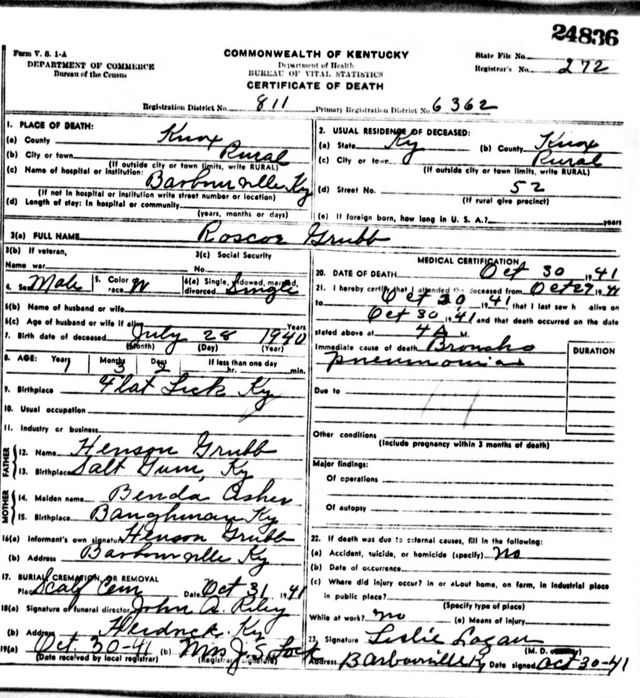 24836
Form V. S. 1-A
DEPARTMENT OF COMMERCE
Bureau of the Census
COMMONWEALTH OF KENTUCKY
Department of Health
BUREAU OF VITAL STATISTICS
CERTIFICATE OF DEATH
State File No.
Registrar's No. 272
Registration District No. 811 Primary Registration District No. 6362
1. PLACE OF DEATH:
(a) County Knox
(b) City or town Rural
(If outside city or town limits, write RURAL)
(c) Name of hospital or institution: Barbourville Ky
(If not in hospital or institution write street number or location)
(d) Length of stay: In hospital or community
(years, months or days)
2. USUAL RESIDENCE OF DECEASED:
(a) State Ky (b) County Knox
(c) City or town Rural
(If outside city or town limits, write RURAL)
(d) Street No. 52
(If rural give precinct)
(e) If foreign born, how long in U. S. A.? years
3(a) FULL NAME Roscoe Grubb
3(b) If veteran,
Name war
3(c) Social Security
No.
4. Sex Male 5. Color or race W 6(a) Single, widowed, married, divorced Single
6(b) Name of husband or wife
6(c) Age of husband or wife if alive Years
7. Birth date of deceased July 28 1940
(Month) (Day) (Year)
8. AGE: Years Months 3 Days 2 If less than one day
hr. min.
9. Birthplace Flat Lick Ky
10. Usual occupation
11. Industry or business
FATHER
12. Name Henson Grubb
13. Birthplace Salt Gum, Ky
MOTHER
14. Maiden name Benda Asher
15. Birthplace Baughman Ky
16(a) Informant's own signature Henson Grubb
(b) Address Barbourville Ky
17. BURIAL, CREMATION, OR REMOVAL
Place Scalf Cem Date Oct 31 1941
18(a) Signature of funeral director John A. Riley
(b) Address Heidrick Ky
19(a) Oct. 30-41 (b) Mrs J. S. Lock
(Date received by local registrar) (Registrar's signature)
MEDICAL CERTIFICATION
20. DATE OF DEATH Oct 30 1941
21. I hereby certify that I attended the deceased from Oct 29 1941
to Oct 30 1941, that I last saw h alive on
Oct 30 1941 and that death occurred on the date
stated above at 4A M.
Immediate cause of death Broncho
pneumonia
DURATION
Due to
Other conditions
(Include pregnancy within 3 months of death)
Major findings:
Of operations
Of autopsy
22. If death was due to external causes, fill in the following:
(a) Accident, suicide, or homicide (specify) No
(b) Date of occurrence
(c) Where did injury occur? in or about home, on farm, in industrial place
in public place?
(Specify type of place)
While at work? no (e) Means of injury
23. Signature Leslie Logan
(M. D.
Address Barbourville Ky Date signed Oct 30-41